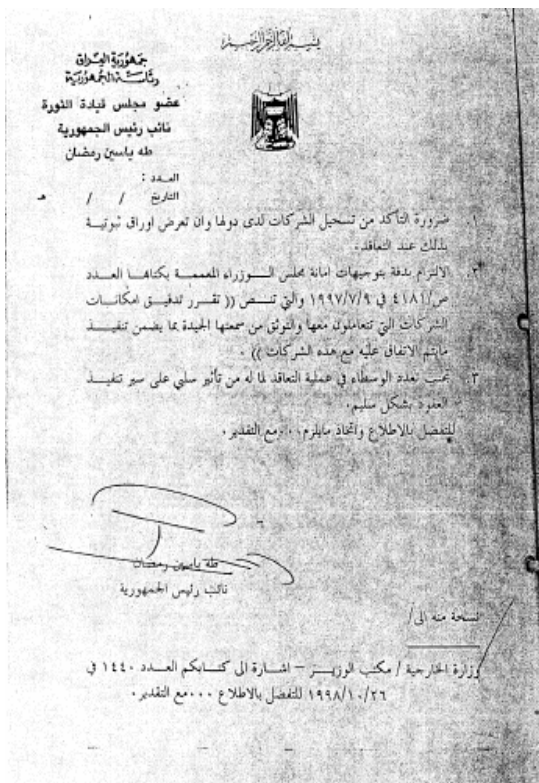 بسم الله الرحمن الرحيم
جمهورية العراق
رئاسة الجمهورية
عضو مجلس قيادة الثورة
نائب رئيس الجمهورية
طه ياسين رمضان
العدد :
التاريخ / / هـ
١. ضرورة التأكد من تسجيل الشركات لدى دولها وان تعرض اوراق ثبوتية
بذلك عند التعاقد.
٢. الالتزام بدقة بتوجيهات امانة مجلس الوزراء المعممة بكتابها العدد
ص/٤١٨١ في ١٩٩٧/٧/٩ والتي تنص (( تقرر تدقيق امكانات
الشركات التي تتعاملون معها والتوثق من سمعتها الجيدة بما يضمن تنفيذ
مايتم الاتفاق عليه مع هذه الشركات )) .
٣. تجنب تعدد الوسطاء في عملية التعاقد لما له من تأثير سلبي على سير تنفيذ
العقود بشكل سليم.
للتفضل بالاطلاع واتخاذ مايلزم...مع التقدير.
طه ياسين رمضان
نائب رئيس الجمهورية
نسخة منه الى/
وزارة الخارجية / مكتب الوزير – اشارة الى كتابكم العدد ١٤٤٠ في
١٩٩٨/١٠/٢٦ للتفضل بالاطلاع ...مع التقدير.